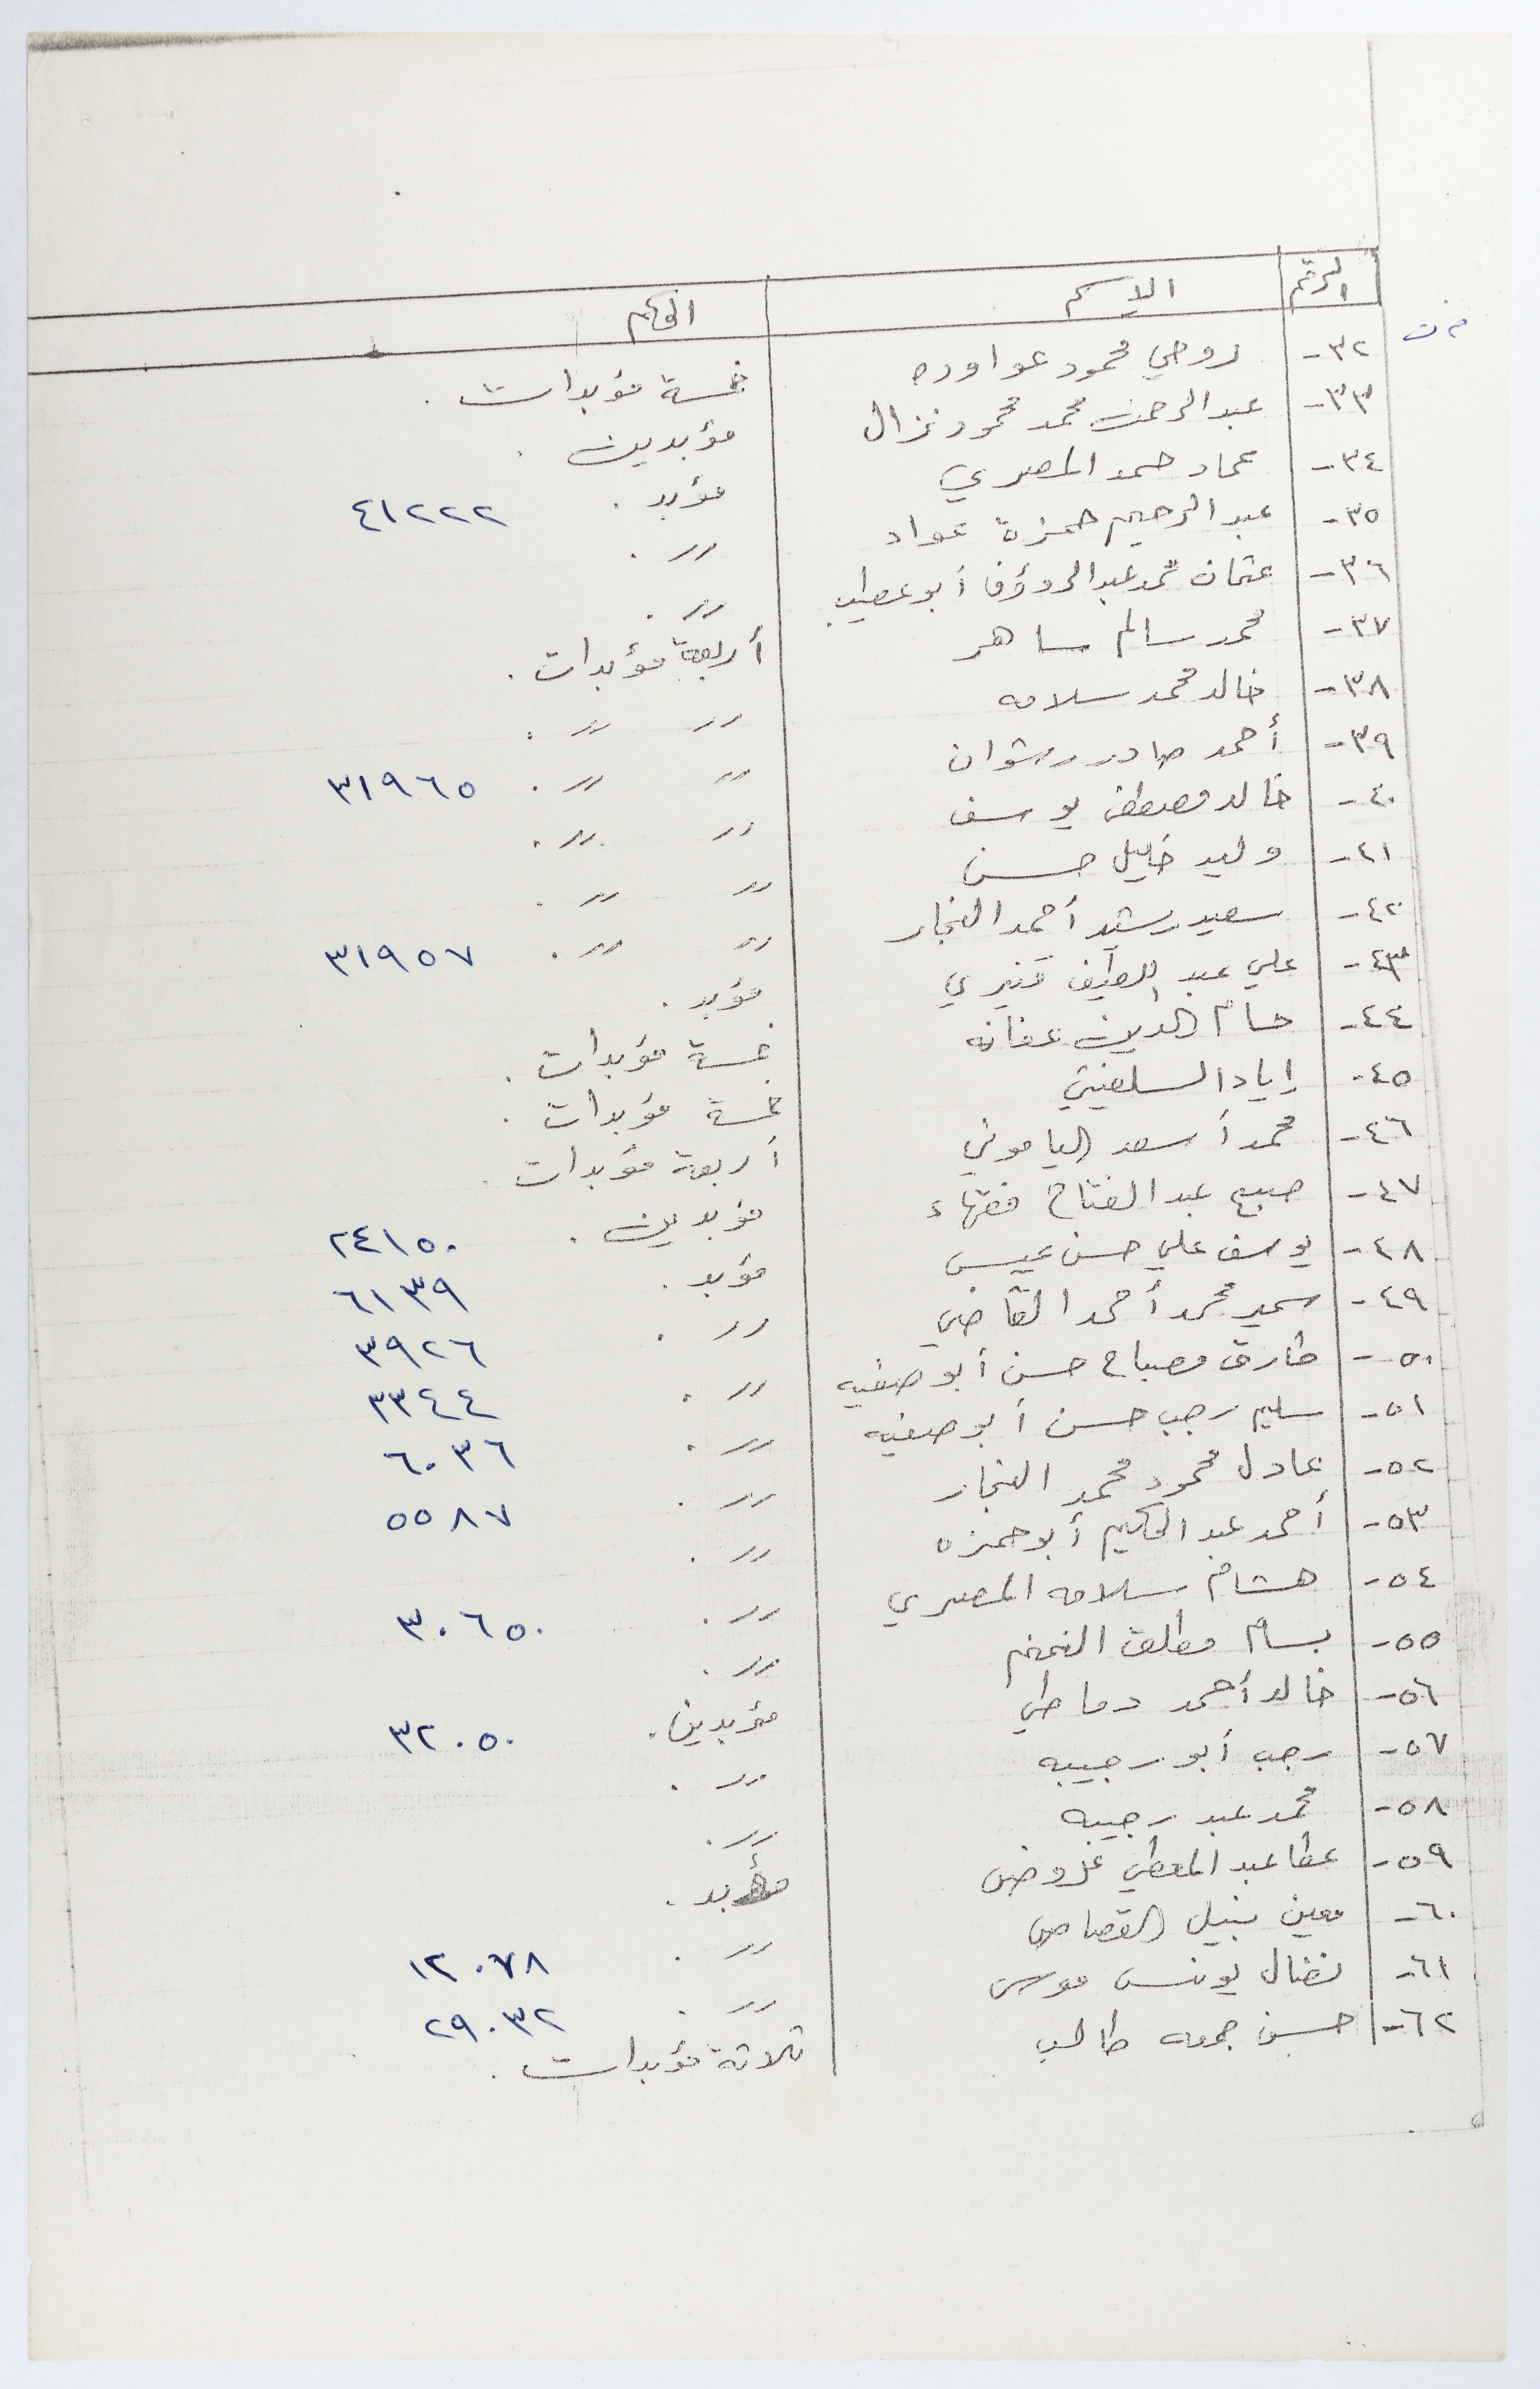 الرقم الاسم الحكم
٣٢- روحي محمود عواوده خمسة مؤبدات .
٣٣- عبد الرحمن محمد محمود نزال مؤبدين .
٣٤- عماد حمد المصري مؤبد . ٤١٢٢٢
٣٥- عبد الرحيم حمزة عواد 〃 .
٣٦- عثمان محمد عبد الرؤوف أبو 〃 .
٣٧- محمد سالم ساهر أربعة مؤبدات .
٣٨- خالد محمد سلامه 〃 〃 .
٣٩- أحمد صادر رشوان 〃 〃 . ٣١٩٦٥
٤٠- خالد مصطفى يوسف 〃 〃 .
٤١- وليد خليل حسن 〃 〃 .
٤٢- سعيد رشيد أحمد النجار 〃 〃 . ٣١٩٥٧
٤٣- علي عبد اللطيف قنيري مؤبد .
٤٤- حسام الدين عفانه خمسة مؤبدات .
٤٥- إياد السلفيتي خمسة مؤبدات .
٤٦- محمد أسعد الياموني أربعة مؤبدات .
٤٧- صبيح عبد الفتاح فقهاء مؤبدين . ٢٤١٥٠
٤٨- يوسف علي حسن عيسى مؤبد . ٦١٣٩
٤٩- سمير محمد أحمد القاضي 〃 . ٣٩٢٦
٥٠- طارق مصباح حسن أبو صفيه 〃 . ٣٣٤٤
٥١- سليم رجب حسن أبو صفيه 〃 . ٦٠٣٦
٥٢- عادل محمود محمد النجار 〃 . ٥٥٨٧
٥٣- أحمد عبد الحكيم أبو حمزه 〃 .
٥٤- هشام سلامه المصري 〃 . ٣٠٦٥٠
٥٥- بسام مطلق 〃 .
٥٦- خالد أحمد دماطي مؤبدين . ٣٢٠٥٠
٥٧- رجب أبو رجيبه 〃 .
٥٨- محمد عبد رجيبه 〃 .
٥٩- عطا عبد المعطي مؤبد .
٦٠- معين نبيل القصاص 〃 . ١٢٠٧٨
٦١- نضال يونس موسى 〃 . ٢٩٠٣٢
٦٢- حسن جمعه طالب ثلاثة مؤبدات .